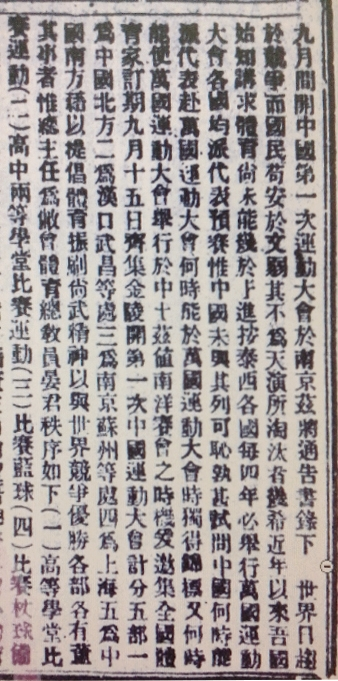 九月間開中國第一次運動大會於南京茲將通告書錄下　世界日趨
於競爭而國民苟安於文弱其不為天演所淘汰者幾希近年以來吾國
始知講求體育尚未能幾於上進按泰西各國每四年必舉行萬國運動
大會各國均派代表預賽惟中國未與其列可恥孰甚試問中國何時能
派代表赴萬國運動大會何時能於萬國運動大會時獨得錦標又何時
能使萬國運動大會舉行於中土茲值南洋賽會之時機爰邀集全國體
育家訂期九月十五日齊集金陵開第一次中國運動大會計分五部一
為中國北方二為漢口武昌等處三為南京蘇州等處四為上海五為中
國南方藉以提倡體育振刷尚武精神以與世界競爭優勝各部各有董
其事者惟總主任為敝會體育總教員晏君秩序如下（一）高等學堂比
賽運動（二）高中兩等學堂比賽運動（三）比賽藍球（四）比賽杖球